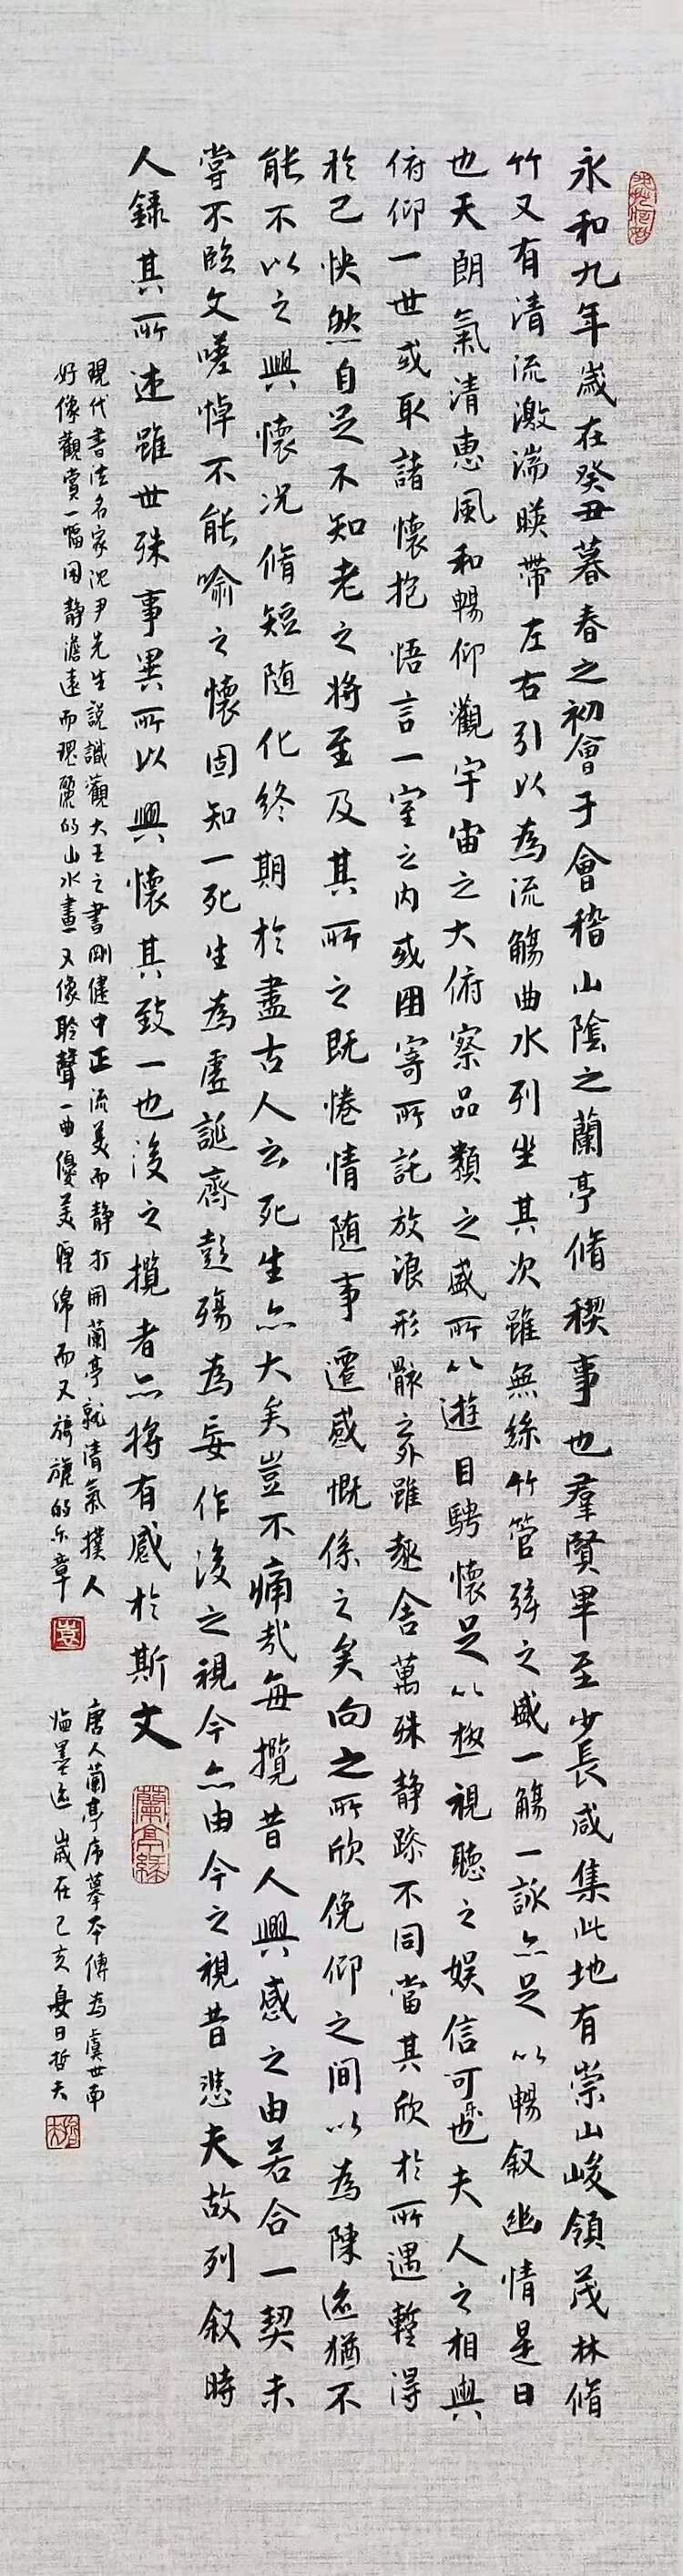 永和九年歲在癸丑暮春之初會于會稽山陰之蘭亭脩稧事也羣賢畢至少長咸集此地有崇山峻領茂林脩
竹又有清流激湍暎帶左右引以為流觴曲水列坐其次雖無絲竹管弦之盛一觴一詠亦足以暢叙幽情是日
也天朗氣清惠風和暢仰觀宇宙之大俯察品類之盛所以遊目騁懷足以極視聽之娛信可樂也夫人之相與
俯仰一世或取諸懷抱悟言一室之内或因寄所託放浪形骸之外雖趣舍萬殊静躁不同當其欣於所遇蹔得
於己怏然自足不知老之將至及其所之既惓情随事遷感慨係之矣向之所欣俛仰之間以為陳迹猶不
能不以之興懷况脩短随化終期於盡古人云死生亦大矣豈不痛哉每攬昔人興感之由若合一契未
嘗不臨文嗟悼不能喻之懷固知一死生為虚誕齊彭殤為妄作後之視今亦由今之視昔悲夫故列叙時
人錄其所述雖世殊事異所以興懷其致一也後之攬者亦將有感於斯文
蘭亭緣
現代書法名家沈尹先生説諦觀大王之書剛健中正流美而静打開蘭亭就清氣撲人
好像觀賞一幅因静澹遠而瑰麗的山水畫又像聆聲一曲優美纏綿而又旖旎的樂章
唐人蘭亭序摹本傳為虞世南
臨墨迹歲在己亥夏日哲夫